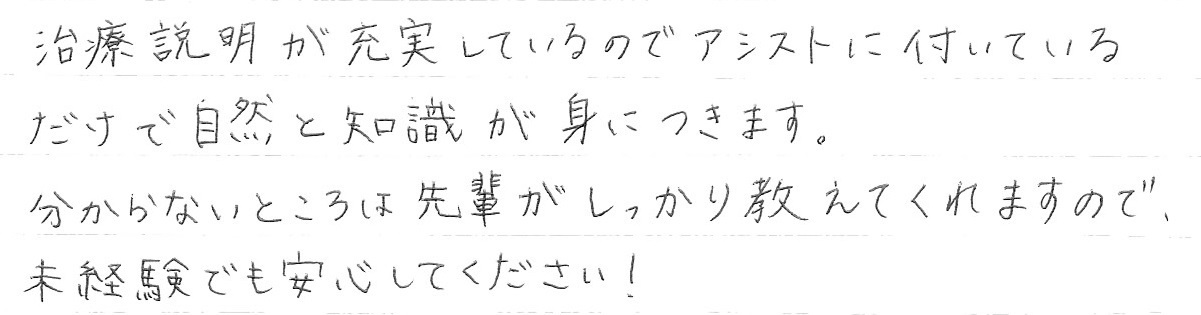 治療説明が充実しているのでアシストに付いている
だけで自然と知識が身につきます。
分からないところは先輩がしっかり教えてくれますので、
未経験でも安心してください!